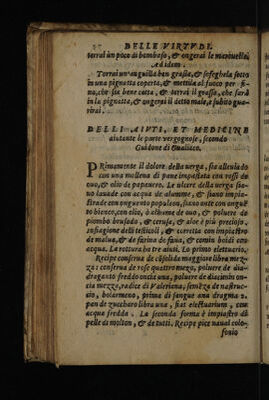 DELLE VIRTV DE
terrai un poco di bombaso, & ongerai le marouelle.
Ad idem
Torrai un'anguilla ben grassa, & sesegherla sotto
in una pignatta coperta, & mettila al fuoco per fi-
no, che sia bene cotta, & terrai il grasso, che sarà
in la pignatta, & ongerai il detto male, e subito gua-
rirai.
DELLI AIVTI, ET MEDICINE
aiutante le parte vergognose, secondo
Guidone di
PRimamente il dolore della uerga, sia alleuiado
con una mollena di pane impastata con rossi de
ouo, & olio de papauero. Le ulcere della uerga sia-
no lauade con acqua de alumme, & siano impia-
strade con onguento populeon, siano ante con onguē
to bianco, con olio, ò albume de ouo, & poluere de
piombo brusado, & cerusa, & aloe è più precioso.
Infiagione delli testicoli, & corretta con impiastro
de malua, & de farina de faua, & comin boidi con
acqua. La rottura ha tre aiuti. Lo primo elettuario.
Recipe conserua de cōsolida maggiore libra mez-
za: conserua de rose quattro mezo, poluere de dia-
dragantò freddo oncia una, poluere de diacimin on-
cia mezzo, radice di Valeriana, semēza de nastruc-
cio, bolarmeno, prima di sangue ana dragma 2.
pan de zuccharo libra una, fiat electuarium, con
acqua fredda. La seconda forma è impiastro di
pelle di molton, & de tutti. Recipe pice naual colo-
fonia